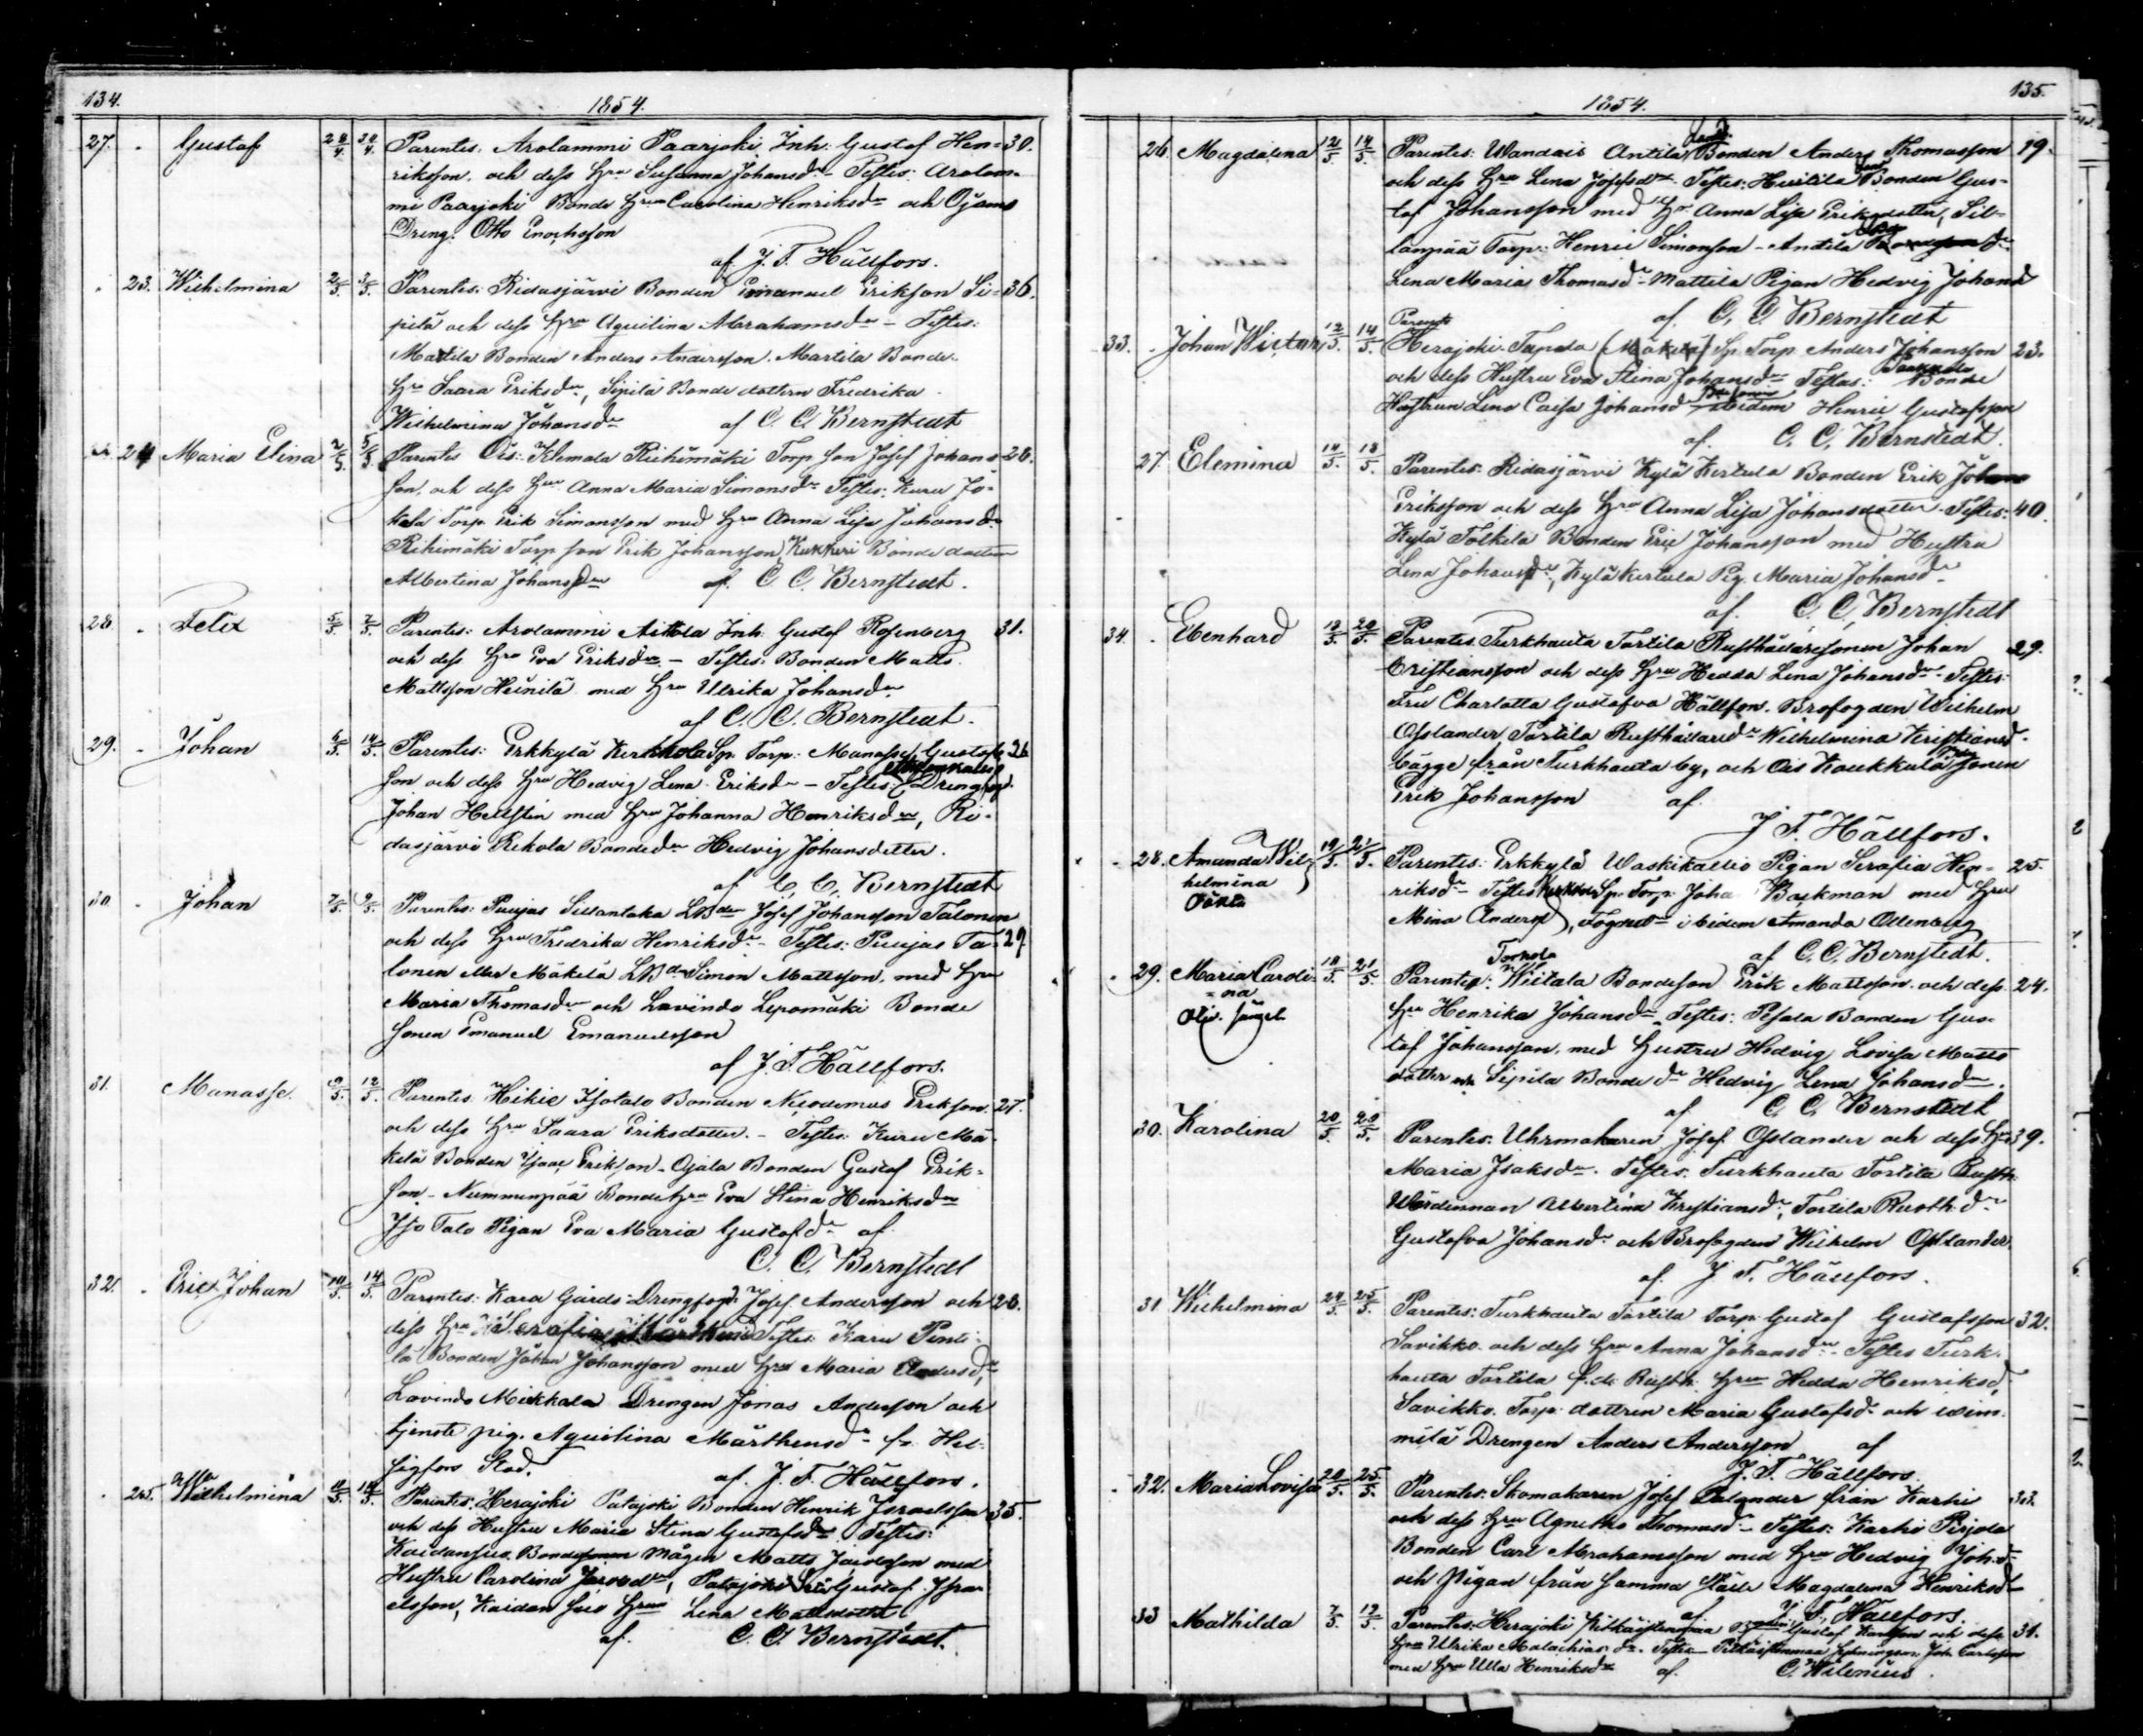 134.
1854.
27. Gustaf 28/4 30/4 Parentes: Arolammi Paarjoki Inh: Gustaf Hen= 30.
riksson och dess Hru Susanna Johansdr - Testes: Arolam-
mi Paarjoki Bonde Hrun Carolina Henriksdr och Ojams
Dreng: Otto Enochsson
af J. F. Hällfors.
23. Wilhelmina 2/5 3/5 Parentes: Ridasjärvi Bonden Emanuel Erikson Si- 36.
pilä och dess Hru Aquilina Abrahamsdr - Testes:
Martila Bonden Anders Andersson. Martila Bonde-
Hru Saara Eriksdr, Sipilä Bonde dottern Fredrika
Wilhelmina Johansdr af C. C. Bernstedt
24 Maria Elina 2/5 5/5 Parentes Ois: Klemola Riihimäki Torp son Josef Johans- 28.
son, och dess Hru Anna Maria Simonsdr Testes: Kuru Jo-
kela Torp. Erik Simonsson med Hru Anna Lisa Johansdr
Riihimäki Torp son Erik Johansson, Kukkeri Bonde dottern
Albertina Johansdr af. C. C. Bernstedt.
28. Felix 5/5 7/5 Parentes: Arolammi Aittola Inh: Gustaf Rosenberg 31.
och dess Hru Eva Eriksdr - Testes: Bonden Matts
Mattsson Heinilä med Hru Ulrika Johansdr
af C. C. Bernstedt.
29. Johan 6/5 14/5 Parentes: Erkkylä Kerkkola Sp. Torp: Manasse Gustafs 26
son och dess Hru Hedvig Lena Eriksdr - Testes: Drengen
Johan Hellstin med Hru Johanna Henriksdr, Ri-
dasjärvi Rekola Bondedr Hedvig Johansdotter.
af C. C. Bernstedt
30. Johan 7/5 9/5 Parentes: Puujas Sillantaka LBdn Josef Johansson Talonen
och dess Hru Fredrika Henriksdr - Testes: Puujas Ta- 29
lonen eller Mäkelä LBdn Simon Mattsson, med Hru
Maria Thomasdr och Lavindo Lepomäki Bonde
sonen Emanuel Emanuelsson
af J. F. Hällfors.
31. Manasse. 9/5 12/5 Parentes Hikie Isotalo Bonden Nicodemus Erikson. 27.
och dess Hru Saara Eriksdotter. - Testes: Kuru Mä-
kelä Bonden Isaac Erikson - Ojala Bonden Gustaf Erik-
son - Nummenpää Bonde Hru Eva Stina Henriksdr
Iso Talo Pigan Eva Maria Gustafsdr af
C. C. Bernstedt
32. Eric Johan 10/5 14/5 Parentes: Kara Gårds Drengfogd: Josef Andersson och 26.
dess Hru Serafia Testes: Karu Penti-
lä Bonden Johan Johansson med Hru Maria Andersdr,
Lavindo Mickkola Drengen Jonas Andersson och
tjenste pig. Agustina Mårthensdr fr. Hel-
singfors Stad. af. J. F. Hällfors.
25. Wilhelmina 11/5 14/5 Parentes: Herajoki Patajoki Bonden Henrik Israelsson 35.
och dess Hustru Maria Stina Gustafsdr Testes:
Kaidansuo Bondesonen mågen Matts Jacobsson med
Hustru Carolina, Patajoki Gustaf Isra-
elsson, Kaidansuo Hrun Lena Mattsdotter
af. C. C. Bernstedt.
135.
1854.
26. Magdalena 12/5 14/5 Parentes: Wandais Antila Bonden Anders Thomasson 19.
och dess Hru Lena Josefsdr Testes: Huitila Bonden Gus-
taf Johansson med Hr Anna Lisa Eriksdotter, Sil-
länpää Torp: Henric Simonson - Antila dr
Lena Maria Thomasdr Mattila Pigan Hedvig Johansd
af. C. C. Bernstedt
33. Johan Wictor 12/5 14/5 Parents
Herajoki Tapola (Mäkelä) Sp. Torp Anders Johansson 23.
och dess Hustru Eva Stina Johansdr Testes: Bonde
Hustrun Lena Caisa Johansd ibidem Henric Gustafsson
af. C. C. Bernstedt.
27. Elemina 14/5 18/5 Parentes: Ridasjärvi Kylä Kertula Bonden Erik
Eriksson och dess Hru Anna Lisa Johansdotter. Testes: 40.
Kylä Tolkila Bonden Eric Johansson med Hustru
Lena Johansdr, Kylä Kertula Pig. Maria Johansdr
af. C. C. Bernstedt
34. Ebenhard 18/5 20/5 Parentes. Turkhauta Tortila Rusthållaresonen Johan 29.
Cristiansson och dess Hru Hedda Lena Johansdr - Testes:
Fru Charlotta Gustafva Hällfors. Brofogden Wilhelm
Oslander, Tortila Rusthållaredr Wilhelmina Kristiansd
bägge från Turkhauta by, och Ois Koukkula sonen
Erik Johansson af
J. F. Hällfors.
28. Amanda Wil- 19/5 21/5 Parentes: Erkkylä Waskikallio Pigan Serafia Hen- 25.
helmina
Oäkta
riksdr - Testes Sp. Torp. Joha Backman med Hru
Mina Andersd, Fogned ibidem Amanda Ollenberg
af C. C. Bernstedt.
29. Maria Caroli- 18/5 21/5 Parentes: Wiitala Bondeson Erik Mattsson och dess 24.
na
Hru Henrika Johansdr Testes: Pesola Bonden Gus-
taf Johansson, med Hustru Hedvig Lovisa Matts
dotter och Sipila Bonde dr Hedvig Lena Johansdr.
af C. C. Bernstedt
30. Karolina 20/5 20/5 Parentes: Uhrmakaren Josef Oslander och dess Hru 39.
Maria Isaksdr. Testes: Turkhauta Tortila Rusth.
Wärdinnan Albertina Kristiansdr, Tortila Rusth. dr
Gustafva Johansdr och Brofogden Wilhelm Oslander.
af. J. F. Hällfors.
31 Wilhelmina 24/5 25/5 Parentes: Turkhauta Tortila Torp Gustaf Gustafsson 32.
Savikko och dess Hru Anna Johansdr - Testes Turk-
hauta Tortila f.d. Rusth. Hru Hedda Henriksd,
Savikko Torp. dottren Maria Gustafsdr och
Drengen Anders Andersson af
J. F. Hällfors.
32. Maria Lovisa 20/5 25/5 Parentes: Skomakaren Josef Palander från Karhi 33.
och dess Hru Agnetha Thomasdr - Testes: Karhi Pirjola
Bonden Carl Abrahamsson med Hru Hedvig Joh.d
och Pigan från samma ställe Magdalena Henriksdr
af J. F. Hällfors.
33 Mathilda 7/5 19/5 Parentes: Herajoki Gustaf och dess 31.
Hru Ulrika Malachiasdr. Testes Joh. Carlsson
med Hru Ulla Henriksdr af. C. Wilenius.